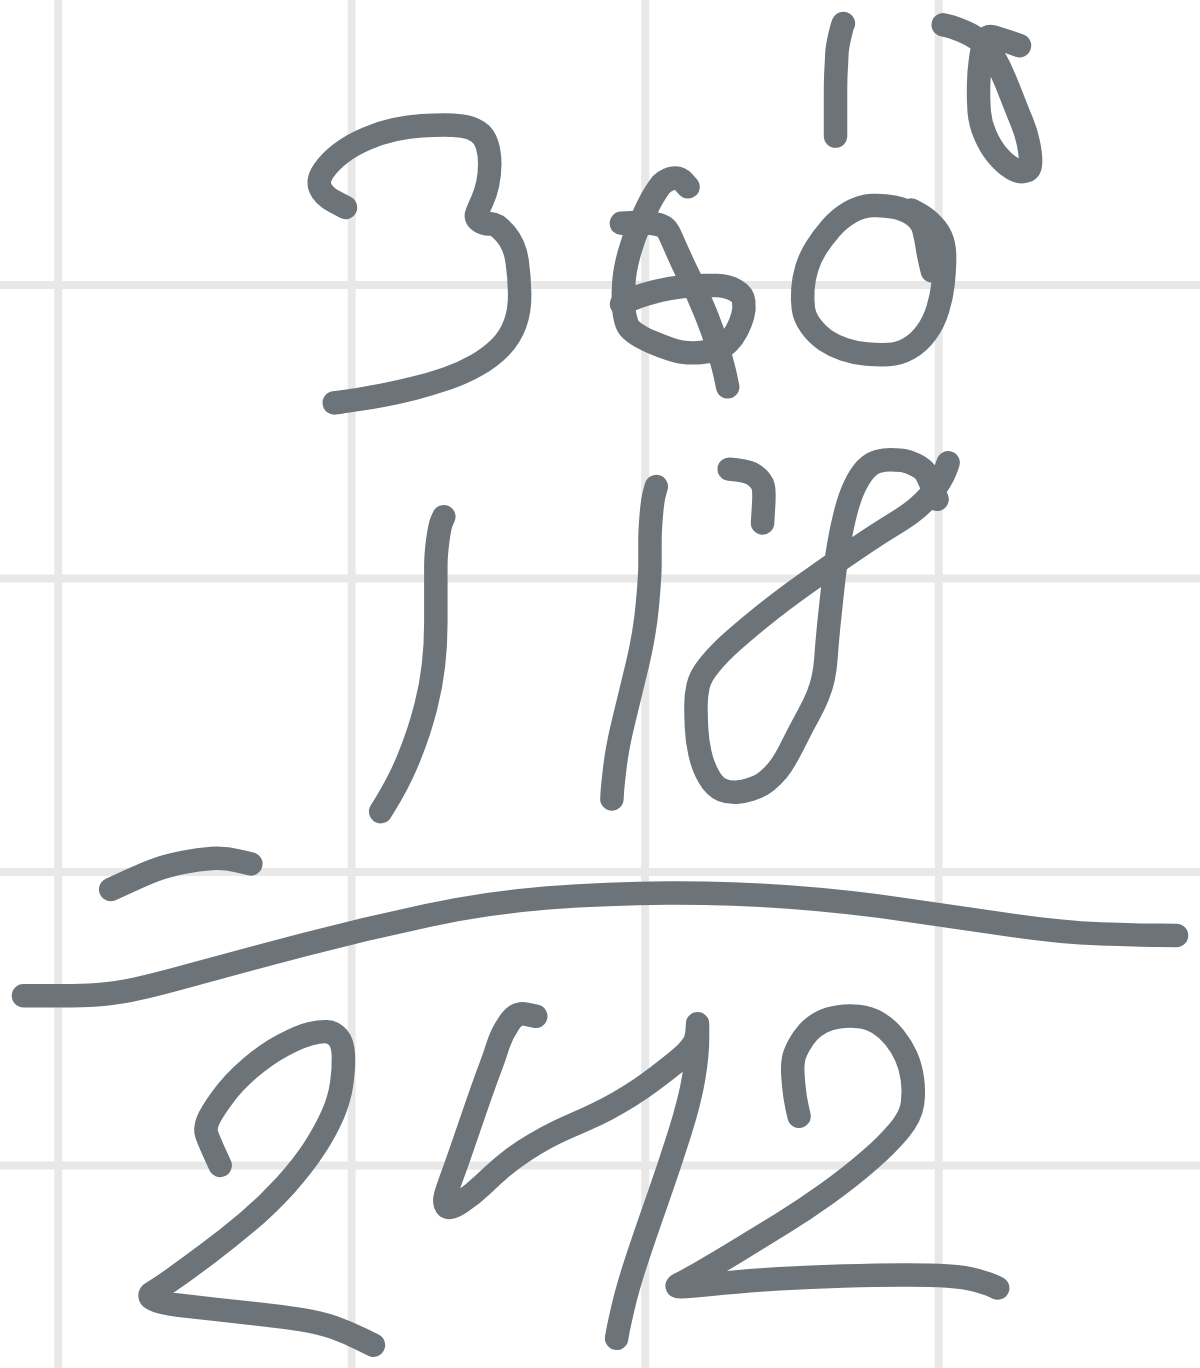 10
360
118
-
242